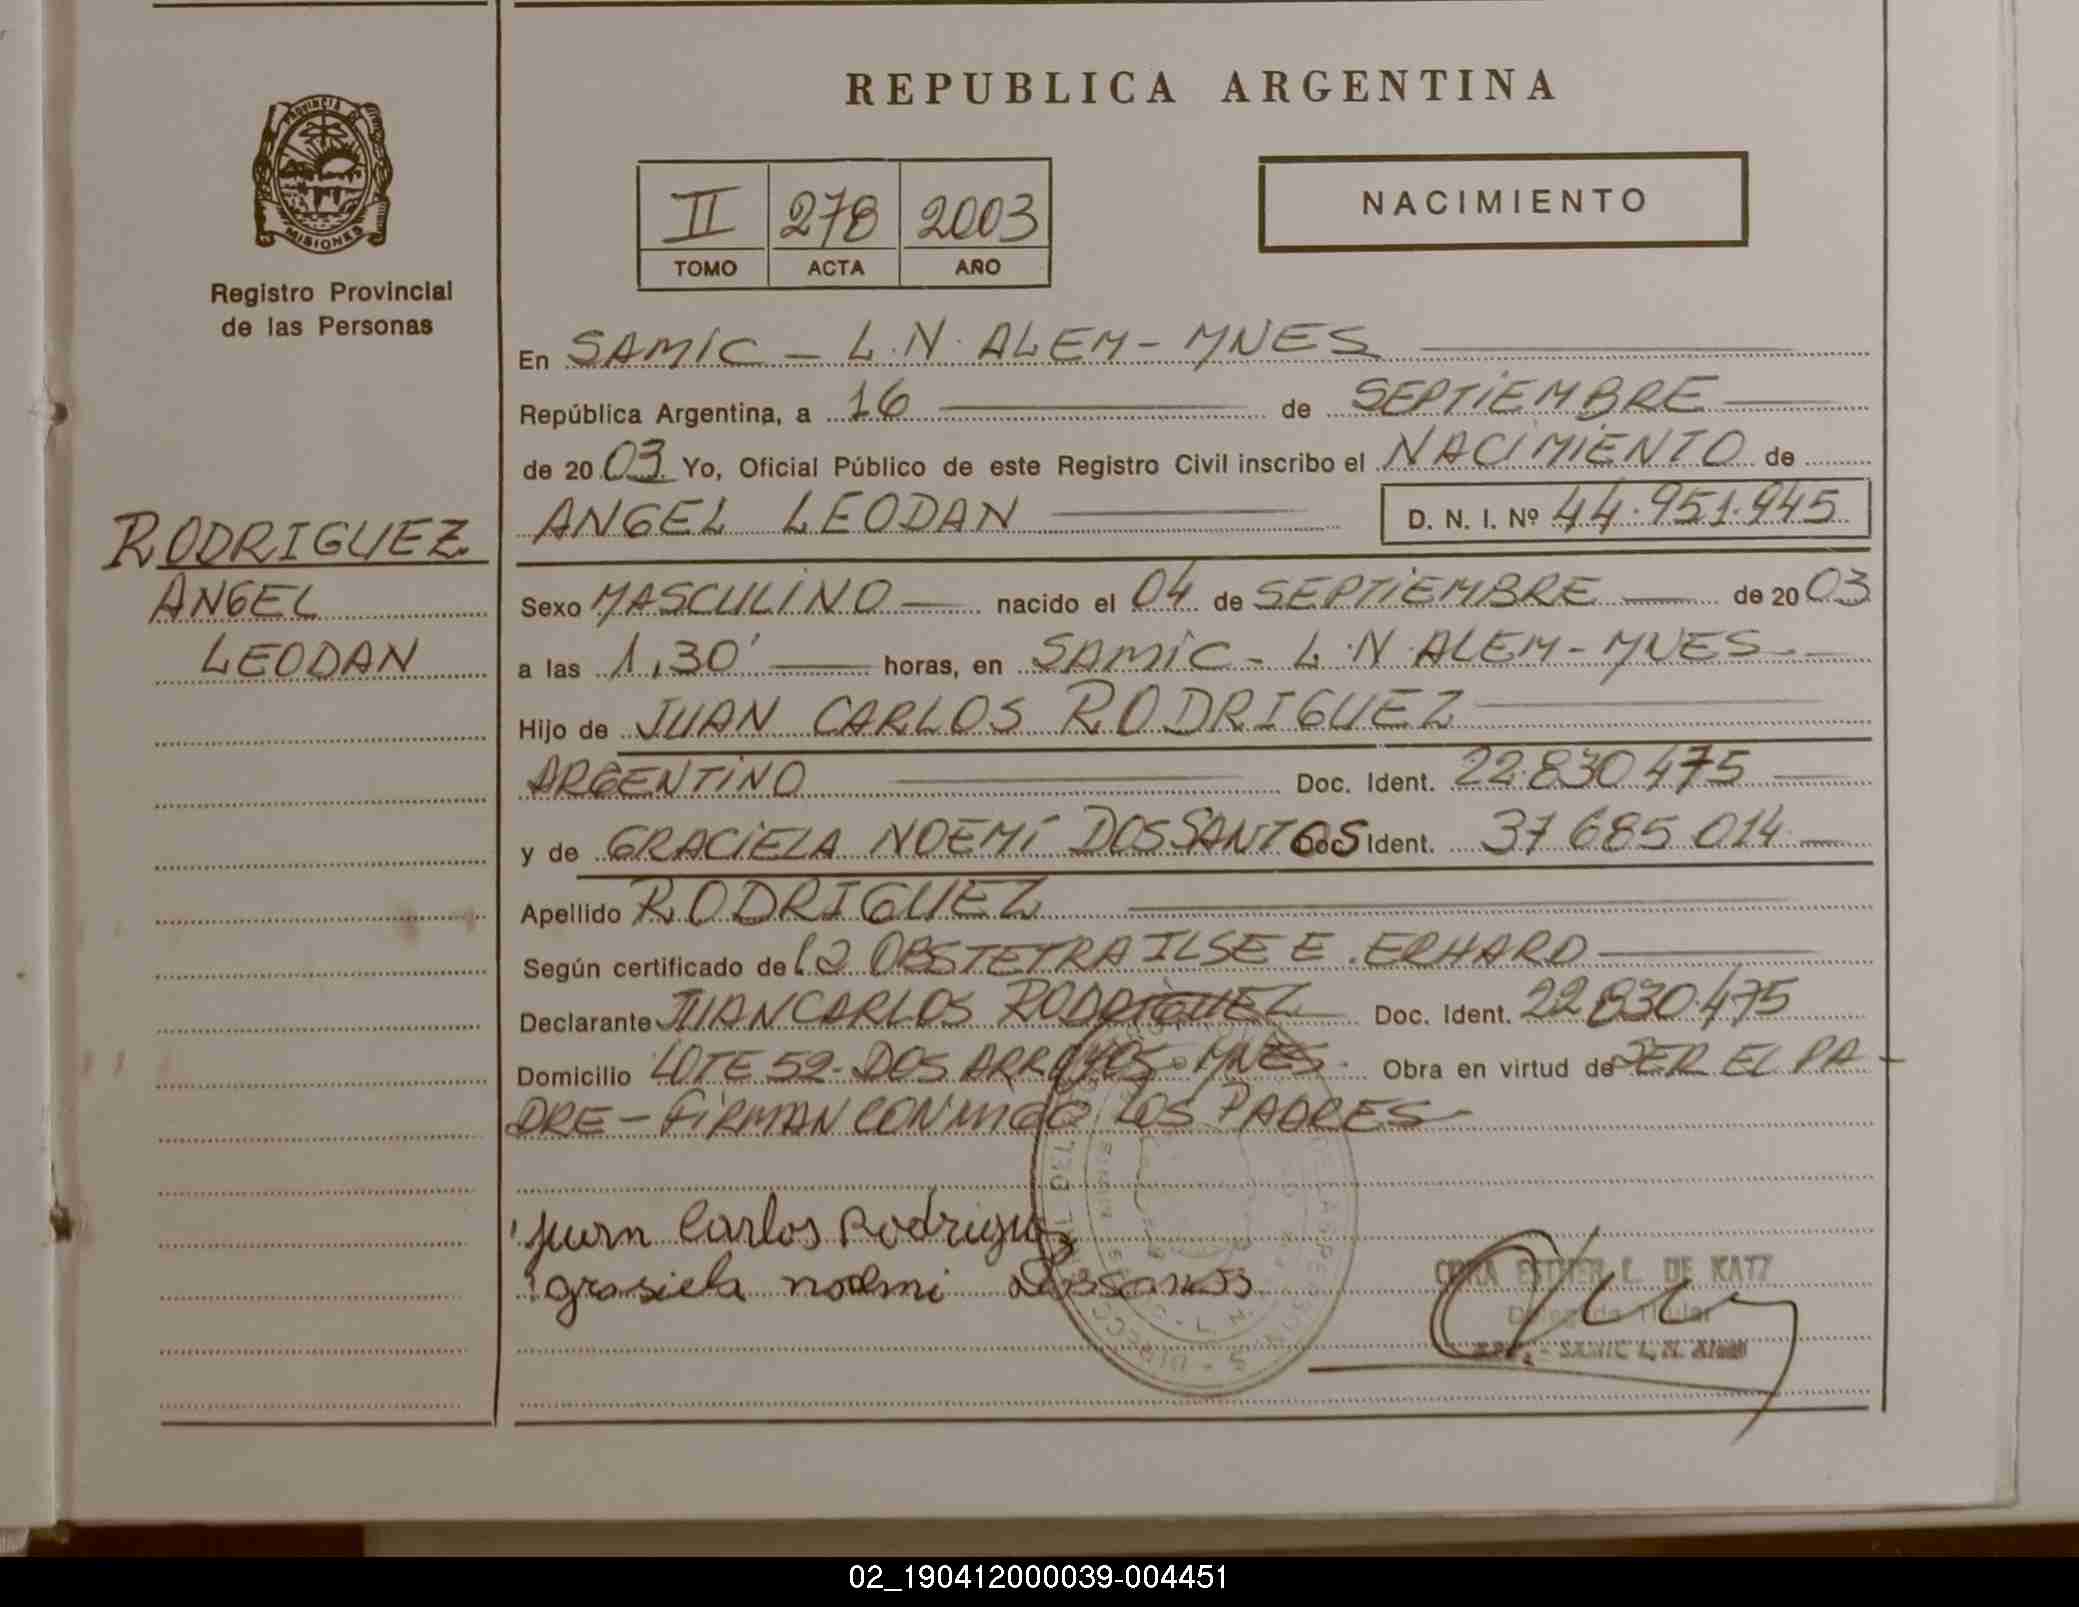 REPUBLICA ARGENTINA
PROVINCIA DE
MISIONES
Registro Provincial
de las Personas
II 278 2003
TOMO ACTA AÑO
NACIMIENTO
RODRIGUEZ
ANGEL
LEODAN
En SAMIC - L.N. ALEM - MNES
República Argentina, a 16 de SEPTIEMBRE
de 20 03 Yo, Oficial Público de este Registro Civil inscribo el NACIMIENTO de
ANGEL LEODAN D. N. I. Nº 44.951.945
Sexo MASCULINO nacido el 04 de SEPTIEMBRE de 20 03
a las 1,30' horas, en SAMIC - L.N. ALEM - MNES
Hijo de JUAN CARLOS RODRIGUEZ
ARGENTINO Doc. Ident. 22.830.475
y de GRACIELA NOEMÍ DOS SANTOS Doc. Ident. 37.685.014
Apellido RODRIGUEZ
Según certificado de la OBSTETRA ILSE E. ERHARD
Declarante JUAN CARLOS RODRIGUEZ Doc. Ident. 22.830.475
Domicilio LOTE 52 - DOS ARROYOS - MNES. Obra en virtud de SER EL PA-
DRE - FIRMAN CONMIGO LOS PADRES -
Juan Carlos Rodriguez
grasiela noemi
ESTHER L. DE KATZ
Delegada Titular
SAMIC L. N. ALEM
02_190412000039-004451